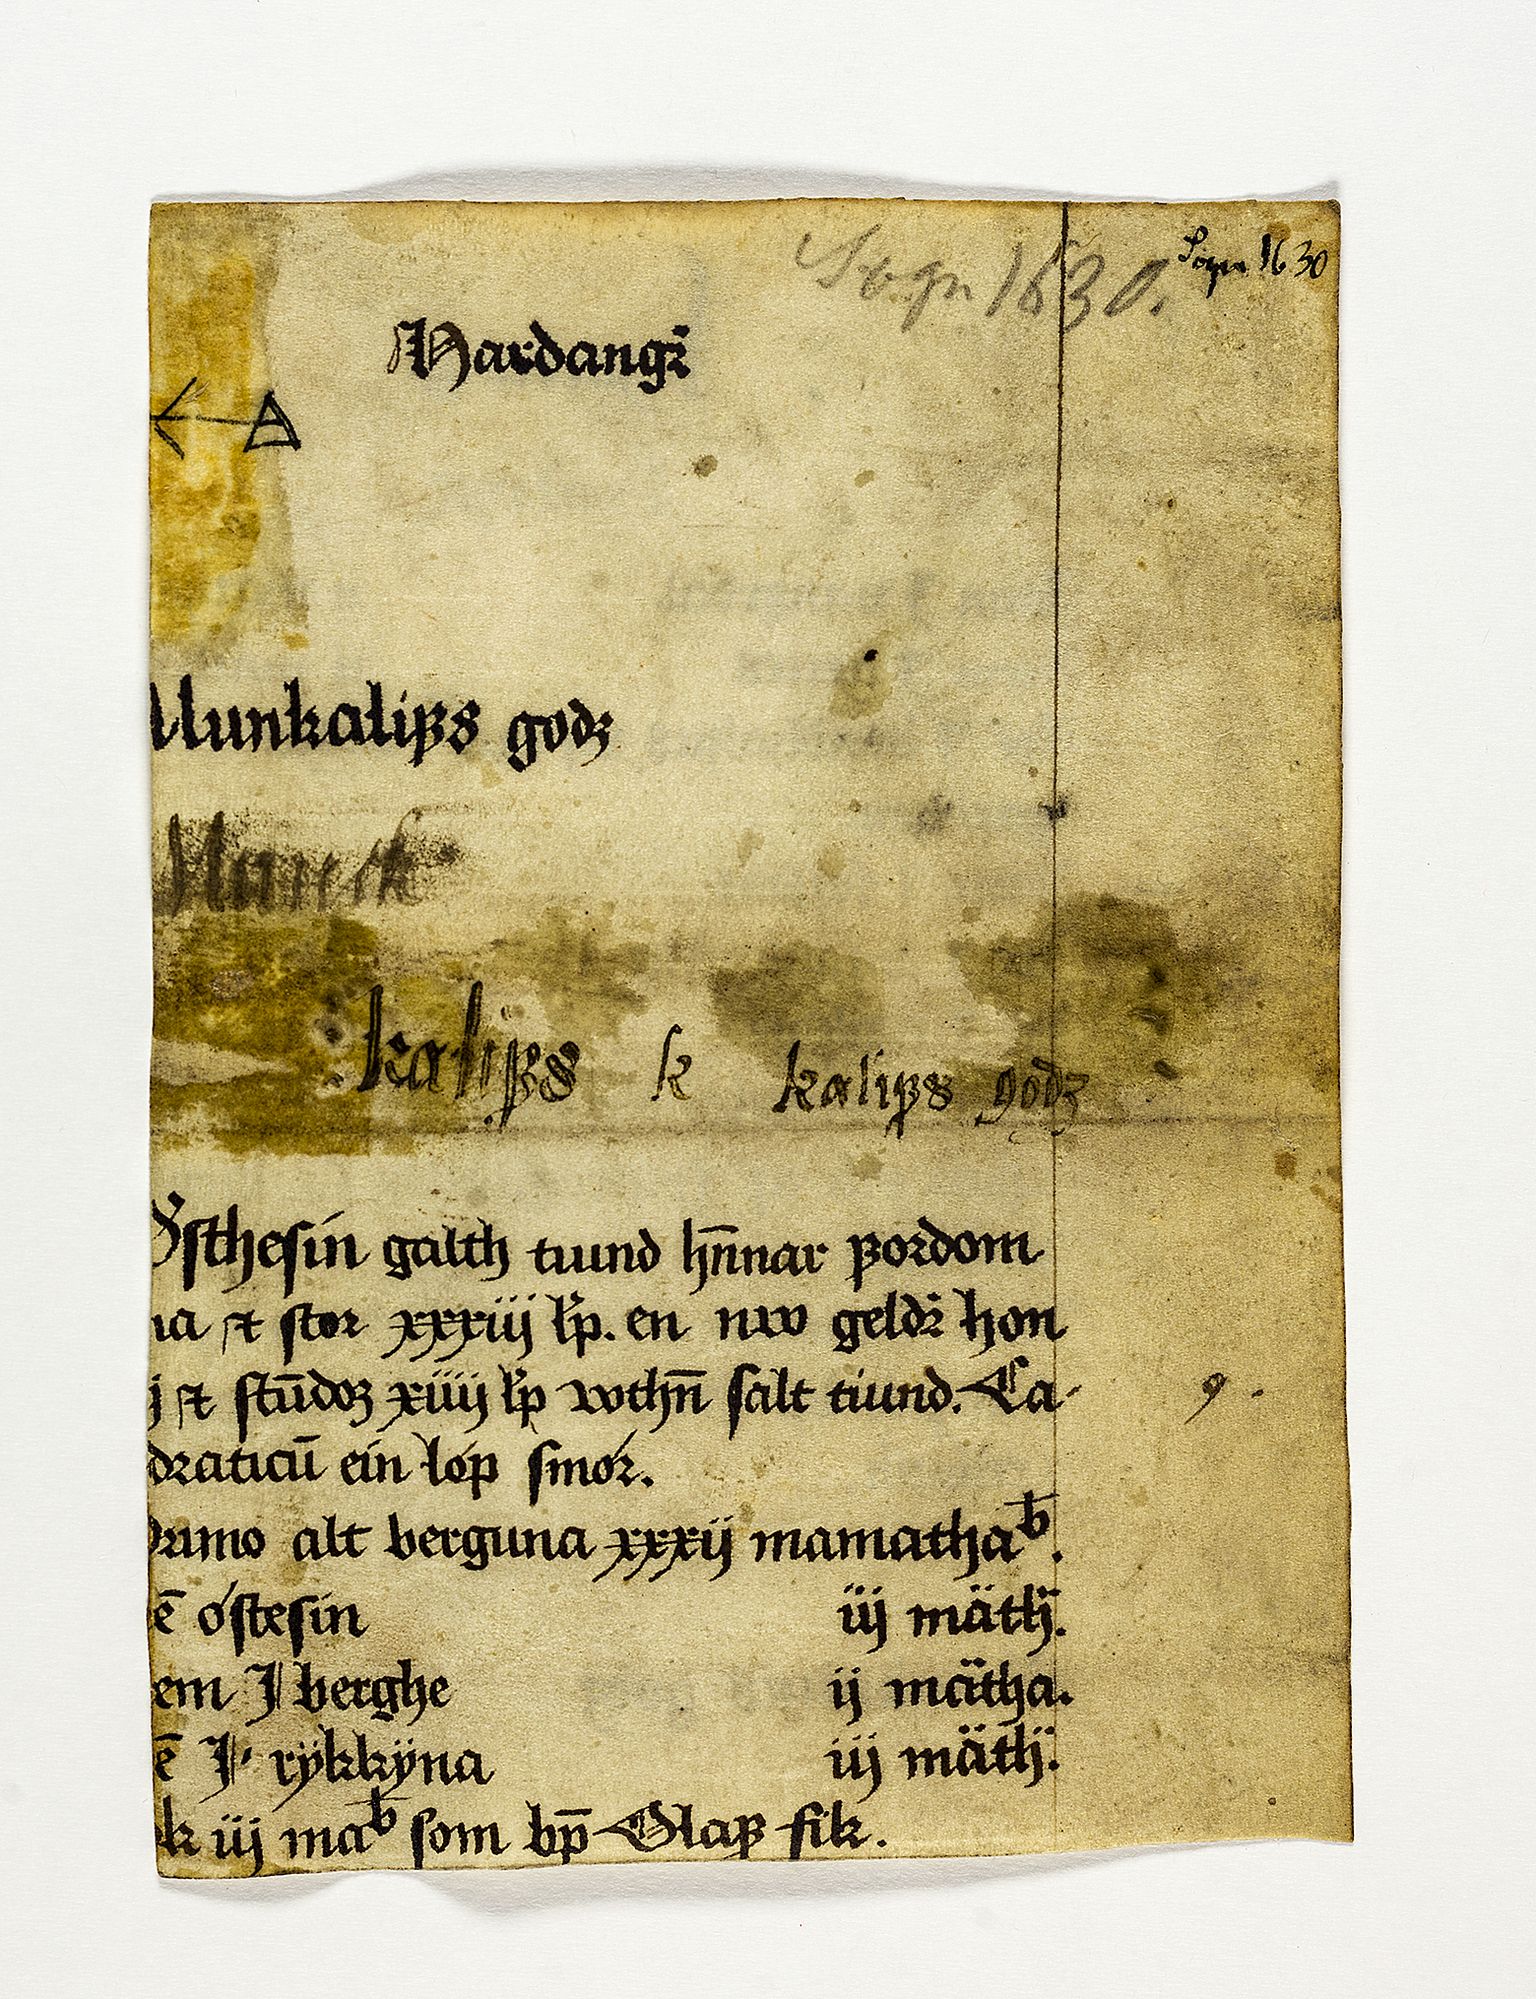 Sogn 1630.
Sogn 1630
Hardangr̄
Munkalifs godz
Munk
kalifs k kalifs godz
Østhesin galth tiund hn̄nar fordom
na et stor xxxiij lp̄. en nw geldr̄ hon
j et stūdoz xiiij lp̄ wthn̄ salt tiund. Ca-
draticū ein lóp smór.
alt berguna xxxij mamathab.
ē óstesin iij mäth.
em J berghe ij mätha.
ē J rÿkkÿna iij mäth.
k iij mab som bp̄ Olaf fik.